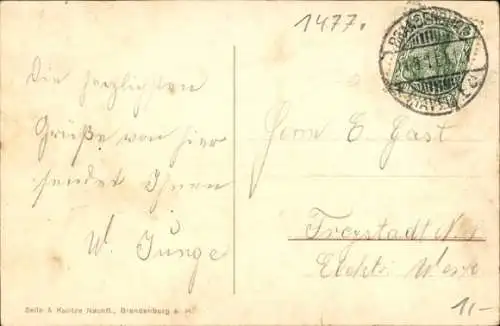 1477.
BRANDENBURG
(HAVEL)
Die herzlichsten
Grüße von hier
sendet Ihnen
W. Junge
Herrn E. Gast
Freystadt N./
Elektr. Werk
1,-
Seile & Kulitze Nachfl., Brandenburg a. H.